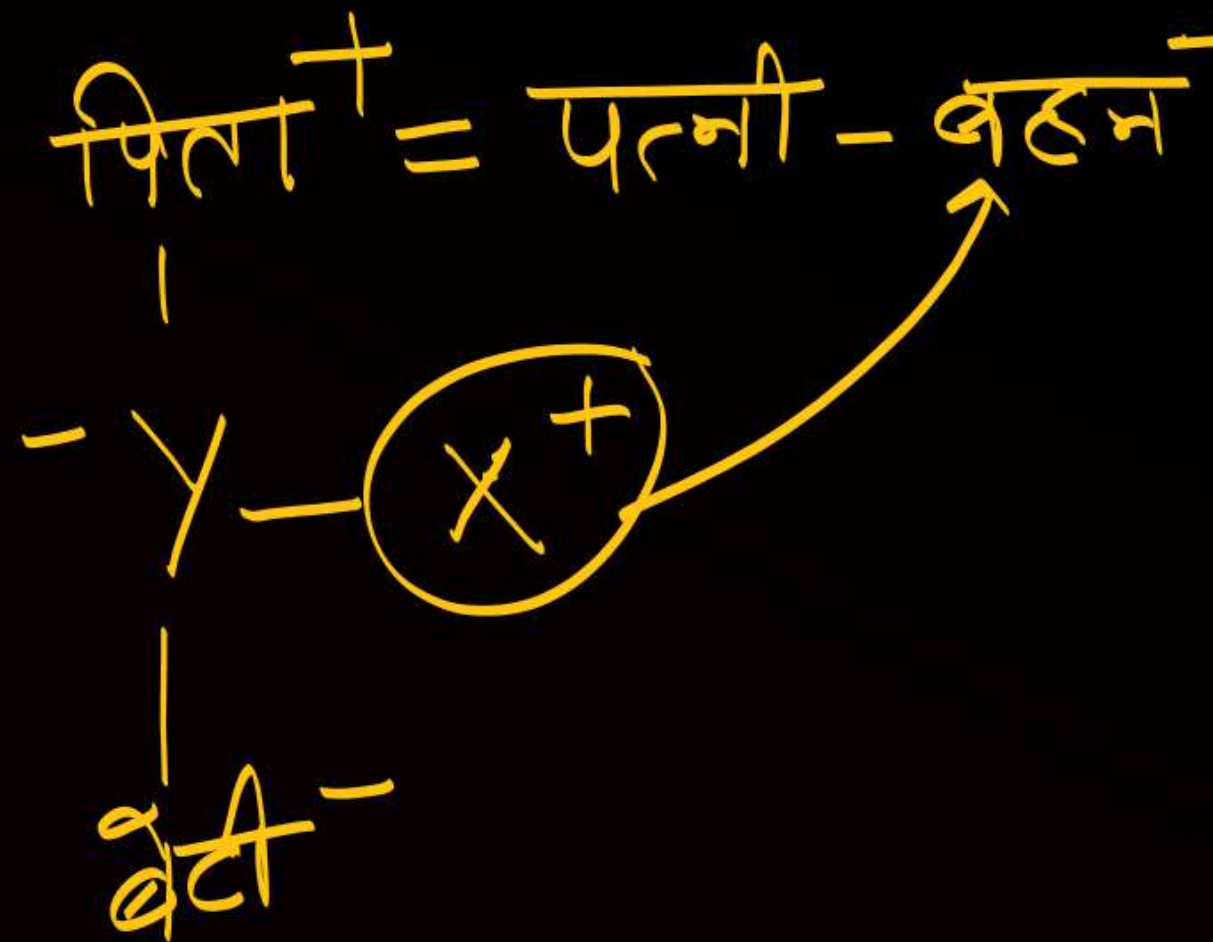 पिता + = पत्नी - बहन -
- Y - X +
बेटी -